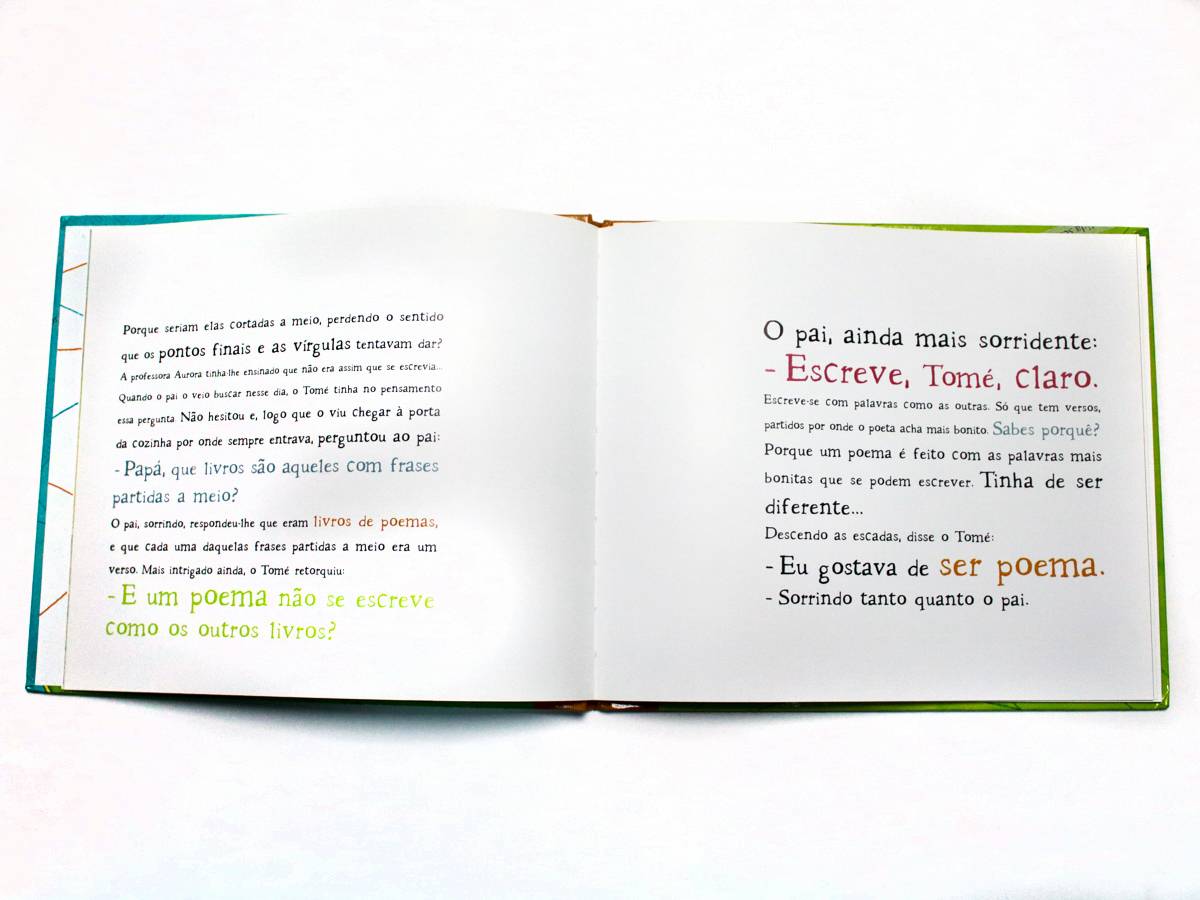 Porque seriam elas cortadas a meio, perdendo o sentido
que os pontos finais e as vírgulas tentavam dar?
A professora Aurora tinha-lhe ensinado que não era assim que se escrevia...
Quando o pai o veio buscar nesse dia, o Tomé tinha no pensamento
essa pergunta. Não hesitou e, logo que o viu chegar à porta
da cozinha por onde sempre entrava, perguntou ao pai:
- Papá, que livros são aqueles com frases
partidas a meio?
O pai, sorrindo, respondeu-lhe que eram livros de poemas,
e que cada uma daquelas frases partidas a meio era um
verso. Mais intrigado ainda, o Tomé retorquiu:
- E um poema não se escreve
como os outros livros?
O pai, ainda mais sorridente:
- Escreve, Tomé, claro.
Escreve-se com palavras como as outras. Só que tem versos,
partidos por onde o poeta acha mais bonito. Sabes porquê?
Porque um poema é feito com as palavras mais
bonitas que se podem escrever. Tinha de ser
diferente...
Descendo as escadas, disse o Tomé:
- Eu gostava de ser poema.
- Sorrindo tanto quanto o pai.